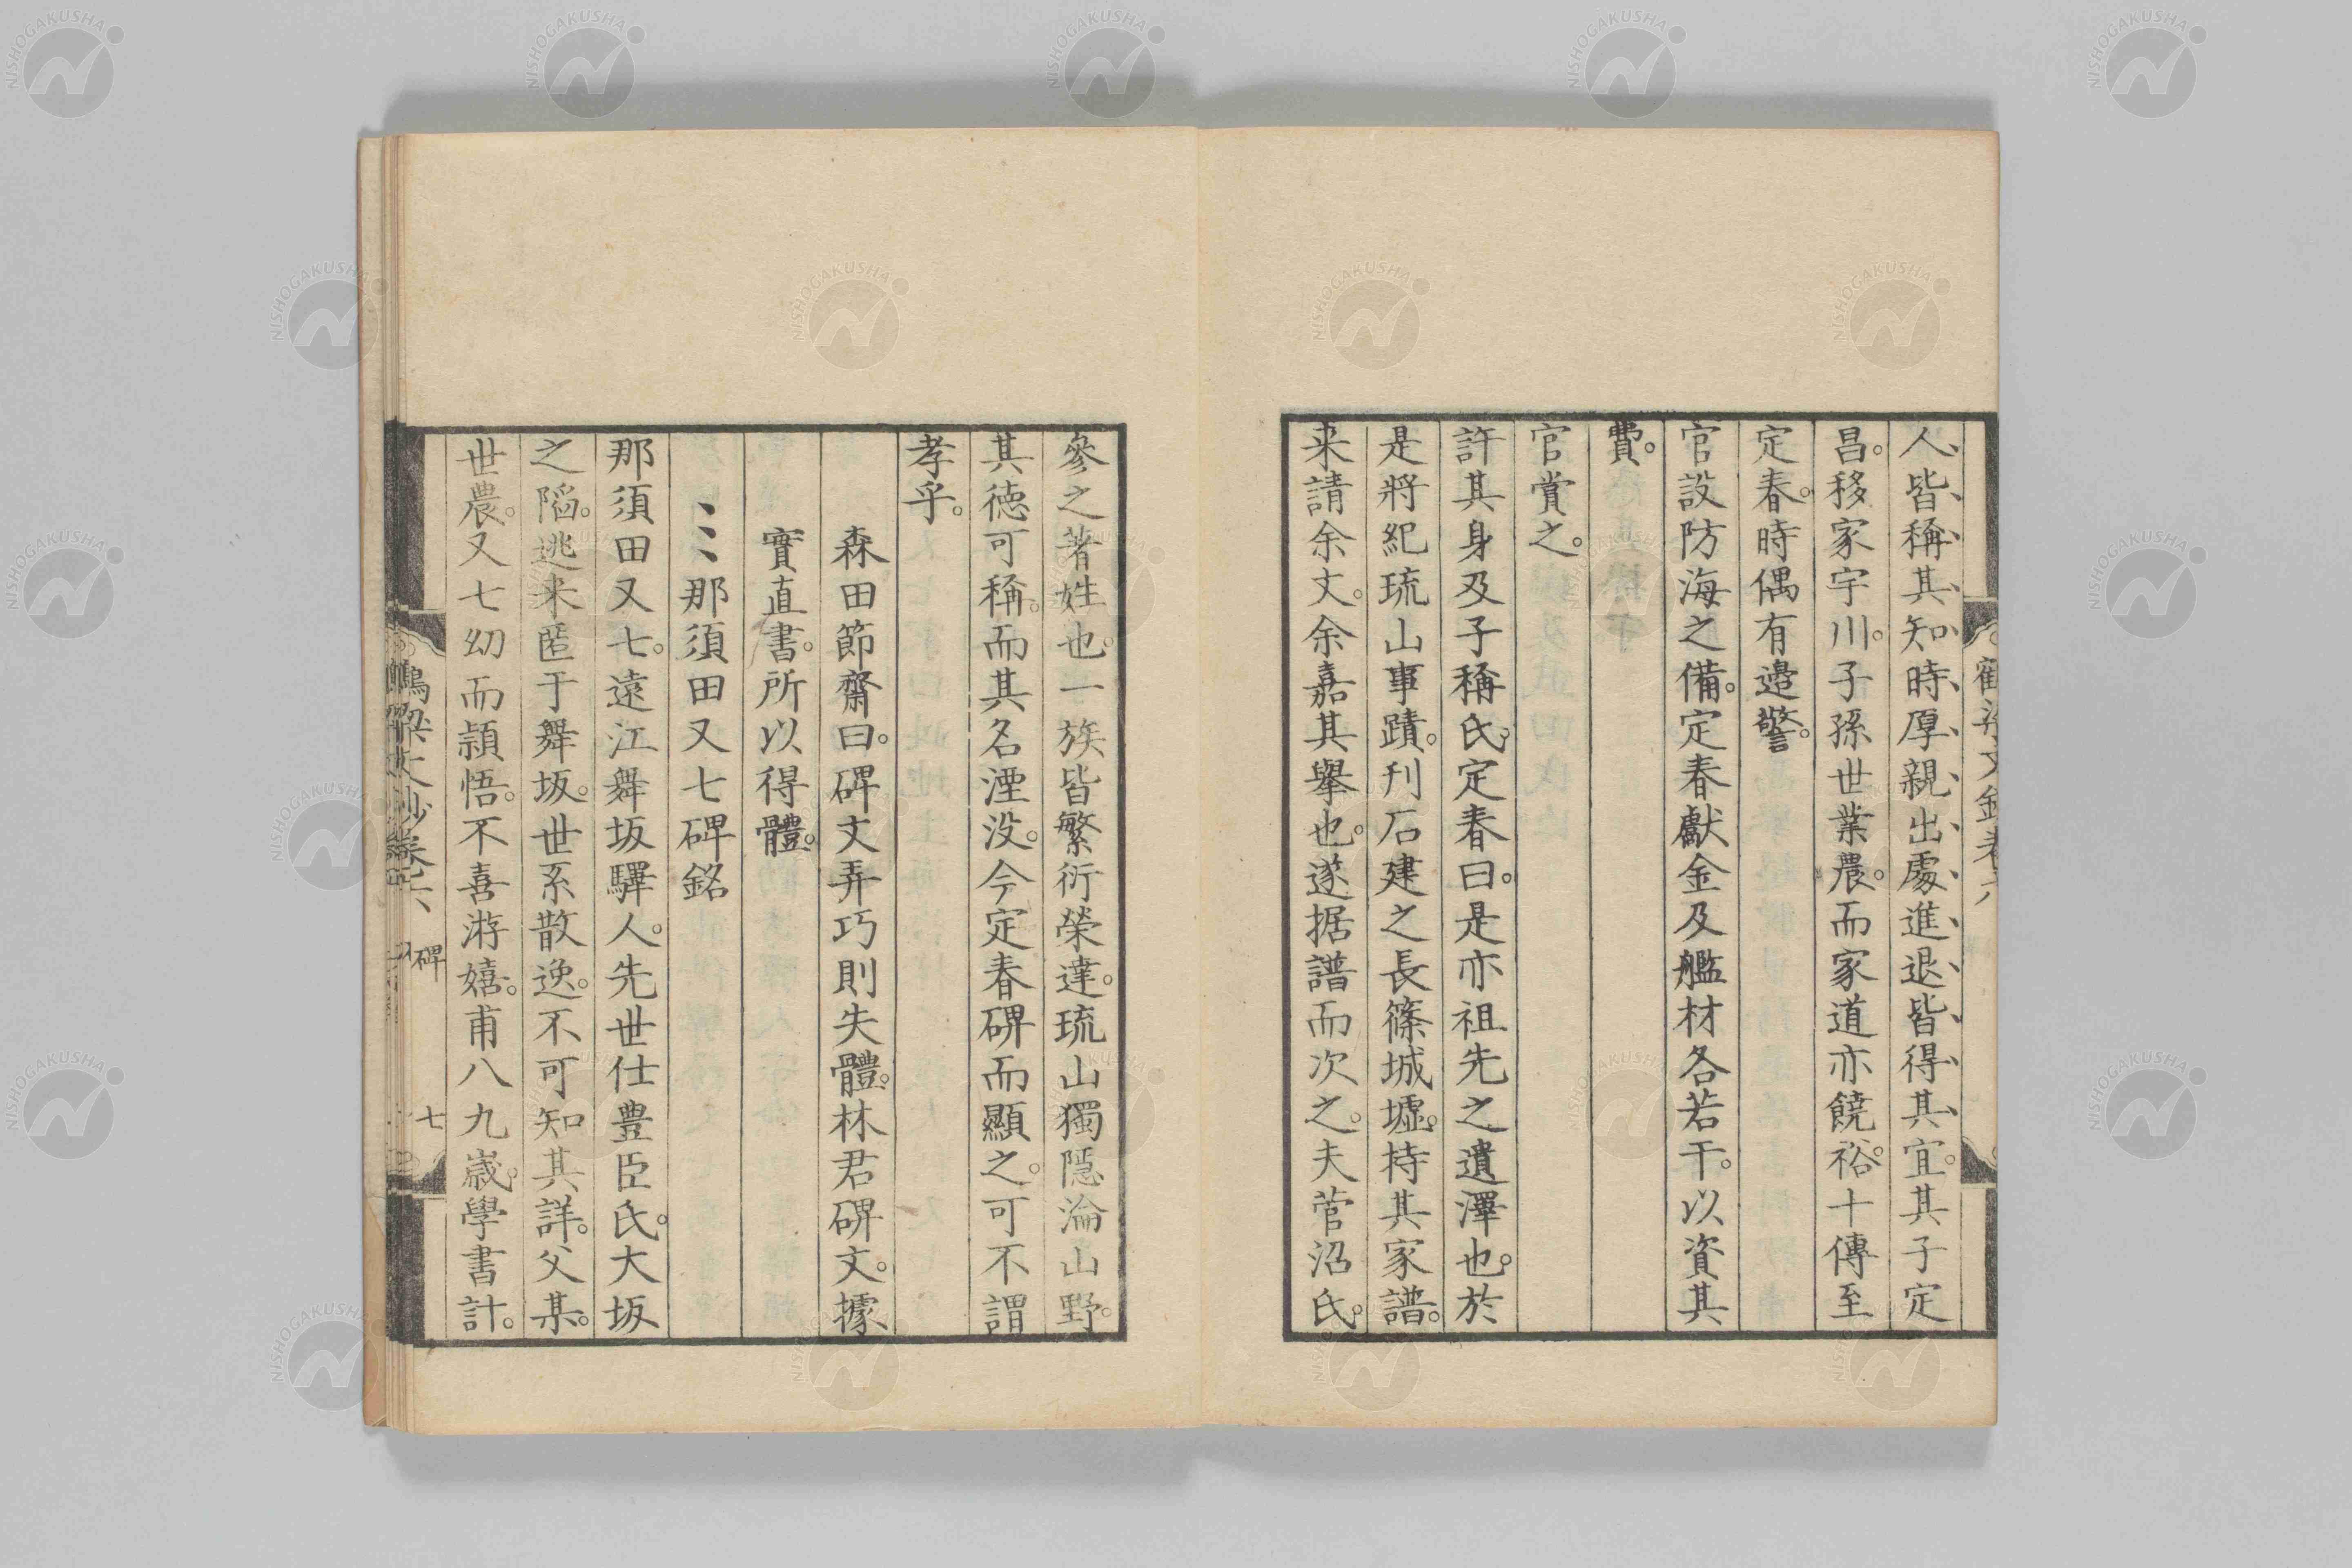 人皆稱其知時厚親出處進退皆得其宜。其子定
昌。移家宇川。子孫世業農。而家道亦饒裕。十傳至
定春。時偶有邉警。
官設防海之備。定春獻金及艦材各若干。以資其
費。
官賞之。
許其身及子稱氏。定春曰。是亦祖先之遺澤也。於
是將紀琉山事蹟。刊石建之長篠城墟。持其家譜。
来請余文。余嘉其擧也。遂据譜而次之。夫菅沼氏。
參之著姓也。一族皆繁衍榮達。琉山獨隱淪山野。
其德可稱。而其名湮没。今定春碑而顯之。可不謂
孝乎。
森田節齋曰。碑文弄巧則失體。林君碑文。據
實直書。所以得體。
那須田又七碑銘
那須田又七。遠江舞坂驛人。先世仕豊臣氏。大坂
之陷。逃来匿于舞坂。世系散逸。不可知其詳。父某。
世農。又七幼而頴悟。不喜游嬉。甫八九歳。學書計。
鶴梁文鈔卷六 碑 七
NISHOGAKUSHA